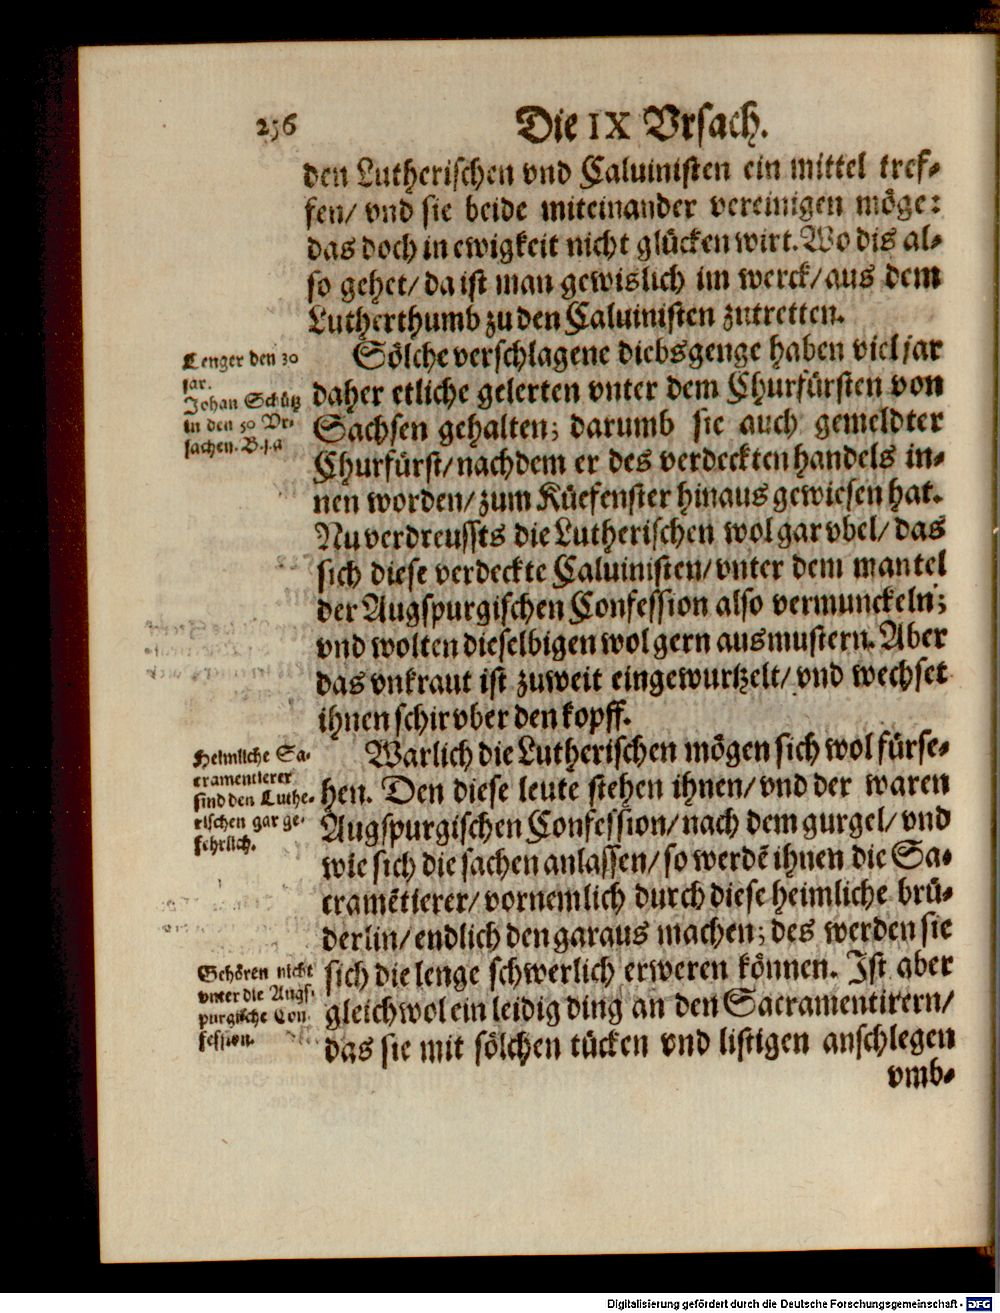 256
Die IX Vrsach.
den Lutherischen vnd Caluinisten ein mittel tref-
fen/ vnd sie beide miteinander vereinigen möge:
das doch in ewigkeit nicht glücken wirt. Wo dis al-
so gehet/ da ist man gewislich im werck/ aus dem
Lutherthumb zu den Caluinisten zutretten.
Lenger den 30
jar.
Johan Schütz
in den 50 Vr-
sachen. B.j.a
Sölche verschlagene diebsgenge haben viel jar
daher etliche gelerten vnter dem Churfürsten von
Sachsen gehalten; darumb sie auch gemeldter
Churfürst/ nachdem er des verdeckten handels in-
nen worden/ zum Küefenster hinaus gewiesen hat.
Nu verdreussts die Lutherischen wol gar vbel/ das
sich diese verdeckte Caluinisten/ vnter dem mantel
der Augspurgischen Confession also vermunckeln;
vnd wolten dieselbigen wol gern ausmustern. Aber
das vnkraut ist zuweit eingewurtzelt/ vnd wechset
ihnen schir vber den kopff.
Heimliche Sa-
cramentierer
sind den Luthe-
rischen gar ge-
fehrlich.
Warlich die Lutherischen mögen sich wol fürse-
hen. Den diese leute stehen ihnen/ vnd der waren
Augspurgischen Confession/ nach dem gurgel/ vnd
wie sich die sachen anlassen/ so werdẽ ihnen die Sa-
cramẽtierer/ vornemlich durch diese heimliche brü-
derlin/ endlich den garaus machen; des werden sie
Gehören nicht
vnter die Augs-
purgische Con-
fession.
sich die lenge schwerlich erweren können. Ist aber
gleichwol ein leidig ding an den Sacramentirern/
das sie mit sölchen tücken vnd listigen anschlegen
vmb-
Digitalisierung gefördert durch die Deutsche Forschungsgemeinschaft - DFG